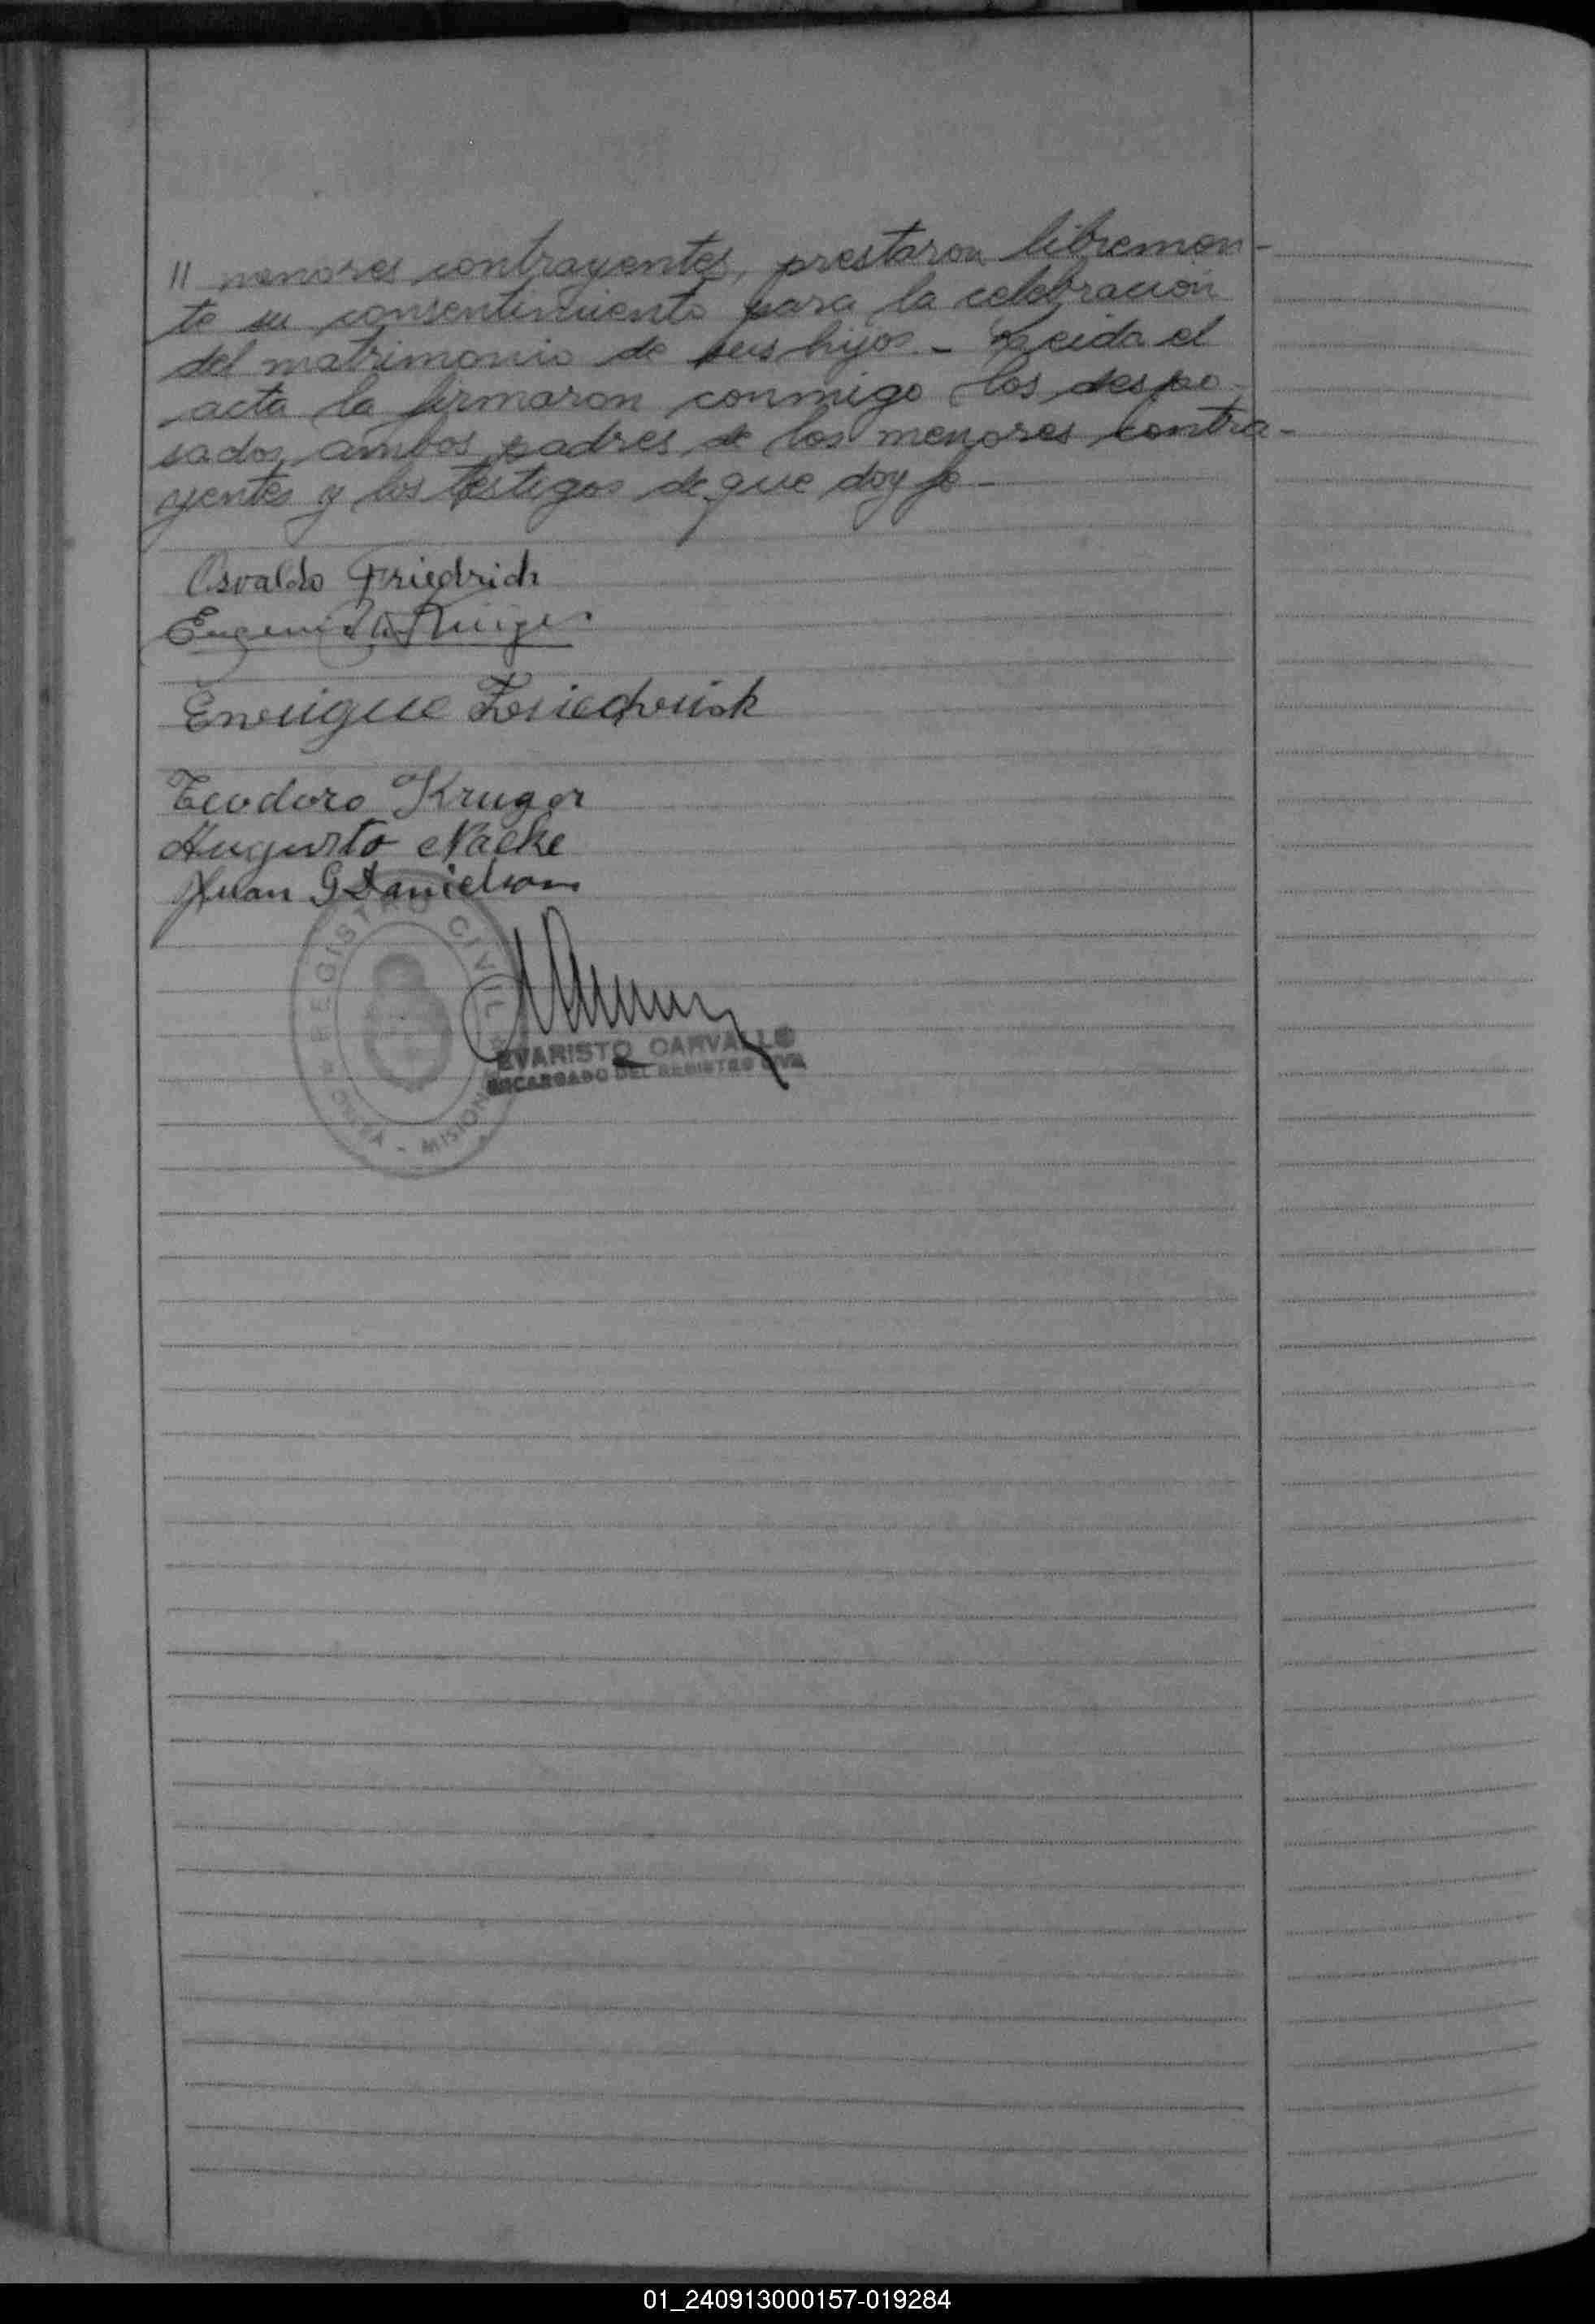 // menores contrayentes, prestaron libremen-
te su consentimiento para la celebración
del matrimonio de sus hijos. - Leida el
acta la firmaron conmigo los despo-
sados, ambos padres de los menores contra-
yentes y los testigos de que doy fe -
Osvaldo Friedrich
Enrique Friedrich
Teodoro Kruger
Augusto Nacke
Juan G Danielson
REGISTRO CIVIL
EVARISTO CARVALLO
ENCARGADO DEL REGISTRO CIVIL
MISIONES
01_240913000157-019284